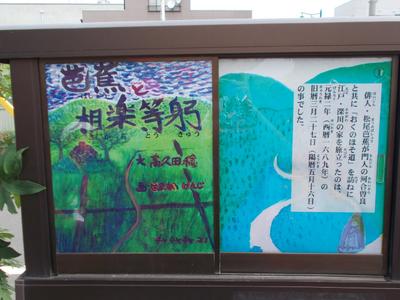 芭蕉と
相楽等躬
とう きゅう
文 高久田稔
①
俳人・松尾芭蕉が門人の河合曽良
と共に『おくのほそ道』を訪ねに
江戸・深川の家を旅立ったのは、
元禄二年（西暦一六八九年）の
旧暦三月二十七日（陽暦五月十六日）
の事でした。